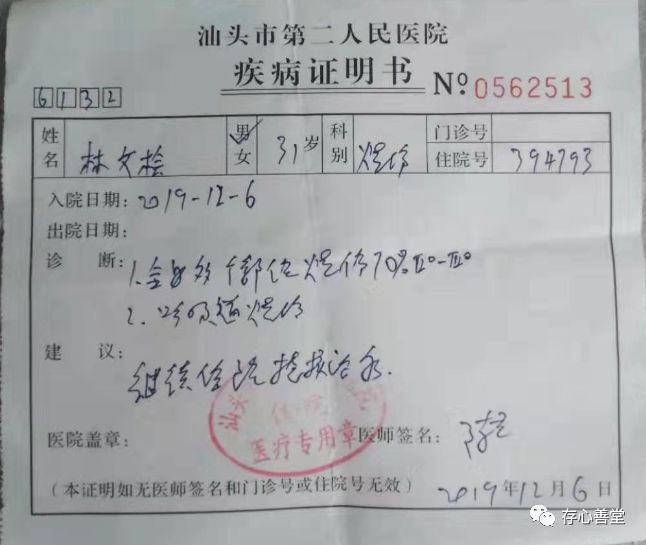 汕头市第二人民医院
疾病证明书
6132
№ 0562513
姓名 林文桧 男女 31岁 科别 烧伤 门诊号
住院号 394793
入院日期：2019-12-6
出院日期：
诊断：1.全身多个部位烧伤70% Ⅱ°-Ⅲ°
2.呼吸道烧伤
建议：
继续住院抢救治疗.
汕头
住院
医疗专用章
医院盖章：
医师签名：
（本证明如无医师签名和门诊号或住院号无效） 2019年12月6日
存心善堂